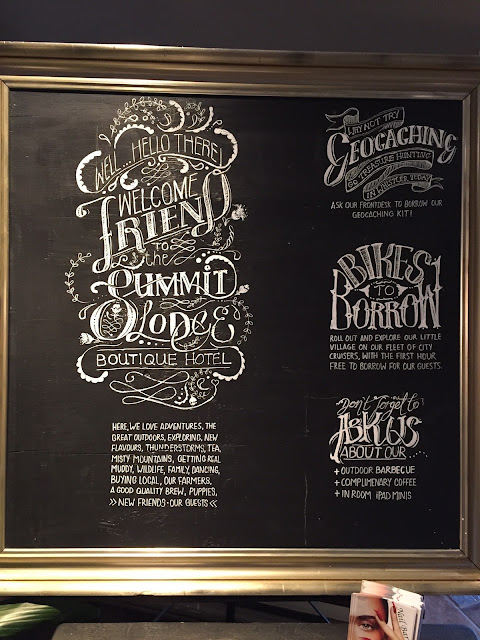 WELL...HELLO THERE!
WELCOME
FRIEND
to
the
SUMMIT
LODGE
BOUTIQUE HOTEL
HERE, WE LOVE ADVENTURES, THE
GREAT OUTDOORS, EXPLORING, NEW
FLAVOURS, THUNDERSTORMS, TEA,
MISTY MOUNTAINS, GETTING REAL
MUDDY, WILDLIFE, FAMILY, DANCING,
BUYING LOCAL, OUR FARMERS,
A GOOD QUALITY BREW, PUPPIES,
>> NEW FRIENDS - OUR GUESTS <<
WHY NOT TRY
GEOCACHING
GO TREASURE HUNTING
IN WHISTLER TODAY
ASK OUR FRONTDESK TO BORROW OUR
GEOCACHING KIT!
BIKES
TO
BORROW
ROLL OUT AND EXPLORE OUR LITTLE
VILLAGE ON OUR FLEET OF CITY
CRUISERS, WITH THE FIRST HOUR
FREE TO BORROW FOR OUR GUESTS.
Don't forget to
ASK US
ABOUT OUR...
+ OUTDOOR BARBECUE
+ COMPLIMENARY COFFEE
+ IN ROOM iPAD MINIS